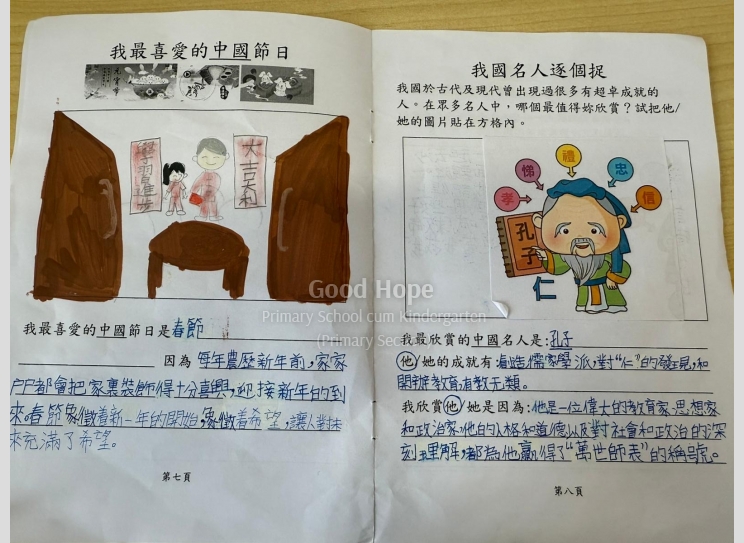 我最喜愛的中國節日
元宵節
學習進步
大吉大利
我最喜愛的中國節日是春節
因為 每年農歷新年前,家家
戶戶都會把家裏裝飾得十分喜興,迎接新年的到
來。春節象徵着新一年的開始,象徵着希望,讓人對未
來充滿了希望。
第七頁
我國名人逐個捉
我國於古代及現代曾出現過很多有超卓成就的
人。在眾多名人中,哪個最值得妳欣賞?試把他/
她的圖片貼在方格內。
孝
悌
禮
忠
信
孔子
仁
我最欣賞的中國名人是:孔子
他/她的成就有:創造儒家學派,對“仁”的發現,和
開辦教育,有教无類。
我欣賞他/她是因為:他是一位偉大的教育家、思想家
和政治家。他的人格和道德以及對社會和政治的深
刻理解,都為他贏得了“萬世師表”的稱號。
第八頁
Good Hope
Primary School cum Kindergarten
(Primary Sec